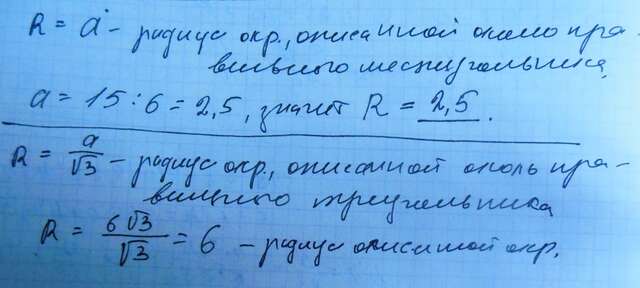 R = a - радиус окр., описанной около пра-
вильного шестиугольника
a = 15 : 6 = 2,5, значит R = 2,5.
R = a/√3 - радиус окр., описанной околь пра-
вильного треугольника
R = 6√3/√3 = 6 - радиус описанной окр.